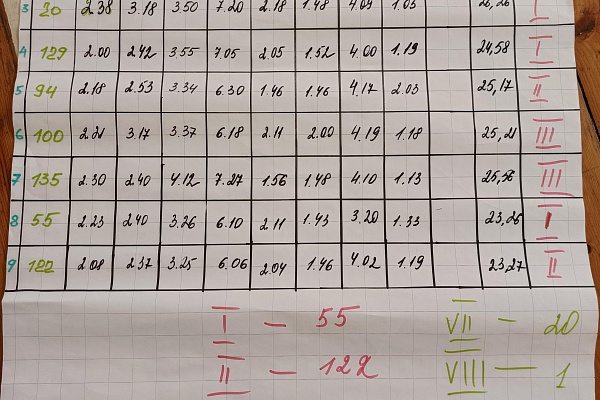 3 20 2.38 3.18 3.50 7.20 2.18 1.48 4.09 1.05 26,26 I
4 129 2.00 2.42 3.55 7.05 2.05 1.52 4.00 1.19 24,58 I
5 94 2.18 2.53 3.34 6.30 1.46 1.46 4.17 2.03 25,17 II
6 100 3.17 3.37 6.18 2.11 2.00 4.19 1.18 25,21 III
7 135 2.30 2.40 4.12 7.27 1.56 1.48 4.10 1.13 25,56 III
8 55 2.23 2.40 3.26 6.10 2.11 1.43 3.20 1.33 23,26 I
9 122 2.08 2.37 3.25 6.06 2.04 1.46 4.02 1.19 23,27 II
I - 55 VII - 20
II - 122 VIII - 1